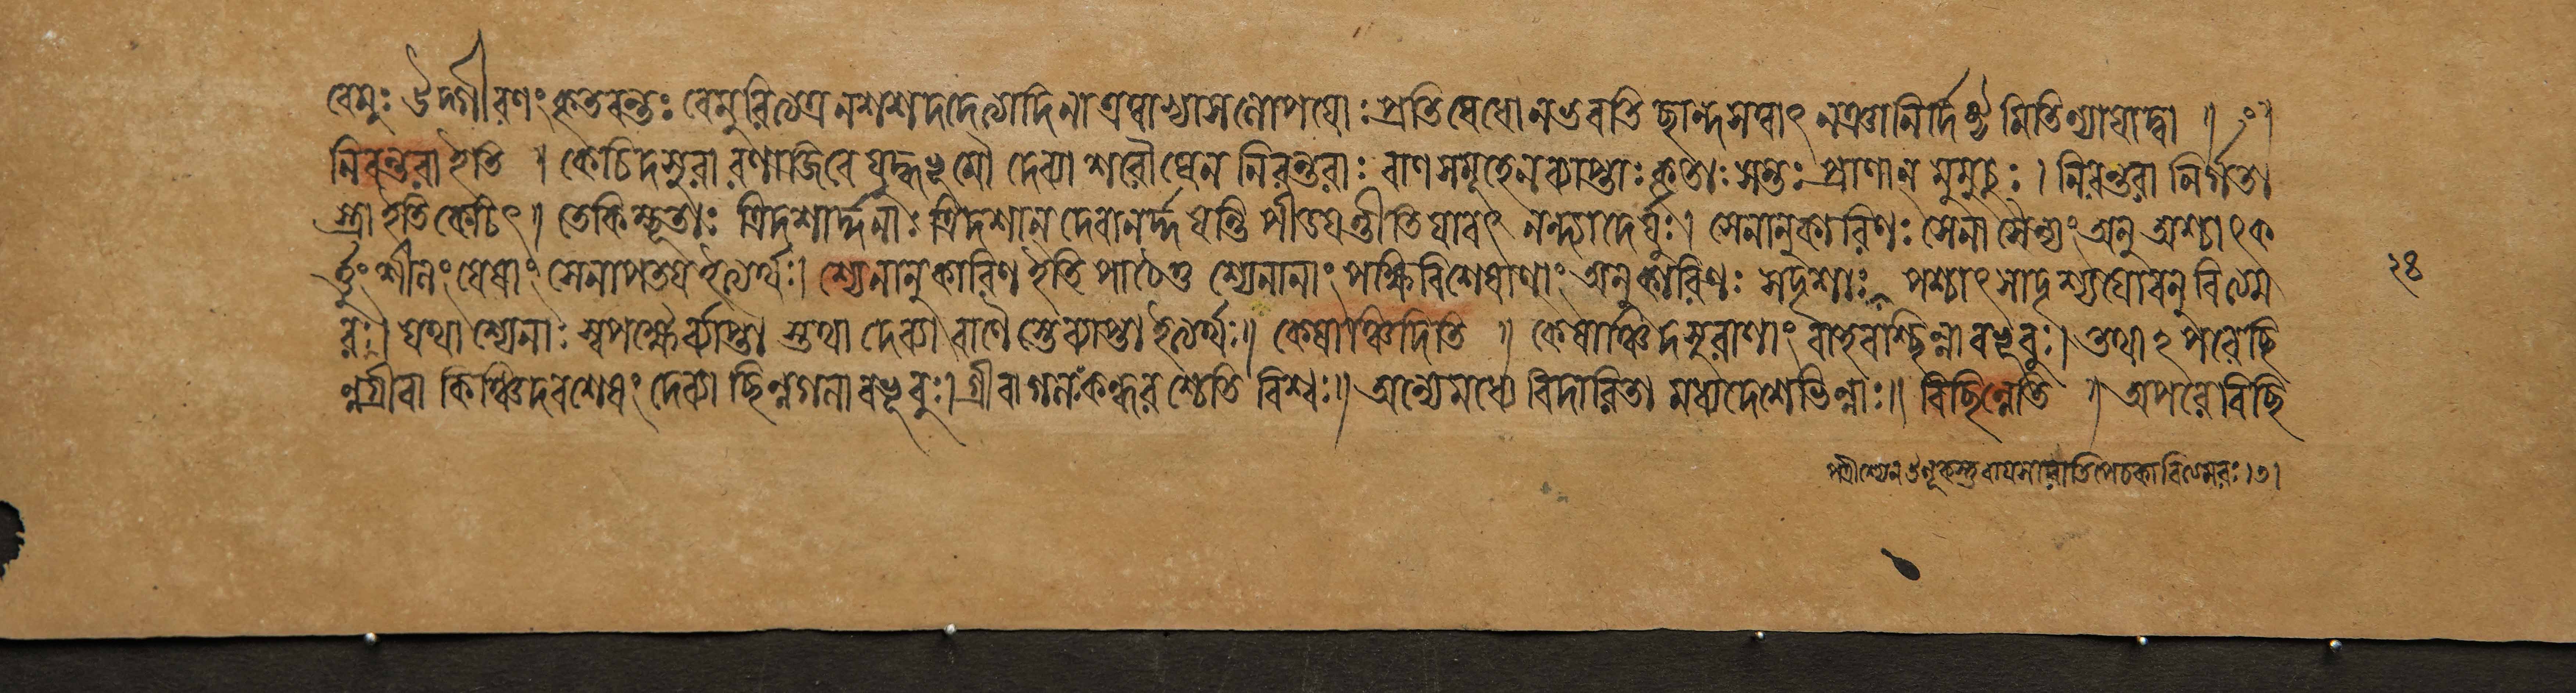 বেমুঃ উদ্গীরণং কৃতবন্তঃ বেমুরিত্যত্র নশশদদদেত্যাদিনা এত্বাভ্যাসলোপযোঃ প্রতিষেধো ন ভবতি ছান্দসত্বাৎ নঞানির্দিষ্টমিতিন্যাযাদ্বা ॥ ॰ ॥
নিরন্তরা ইতি ॥ কেচিদসুরা রণাজিরে যুদ্ধভূমৌ দেব্যা শরৌঘেন নিরন্তরাঃ বাণসমূহেন ব্যাপ্তাঃ কৃতাঃ সন্তঃ প্রাণান্ মুমুচুঃ । নিরন্তরা নির্গতা
ন্ত্রা ইতি কেচিৎ ॥ তে কিম্ভূতাঃ ত্রিদশার্দ্দনাঃ ত্রিদশান্ দেবানর্দ্দযন্তি পীডযন্তীতি যাবৎ নন্দ্যাদের্যুঃ । সেনানুকারিণঃ সেনা সৈন্যং অনু পশ্চাৎ ক
র্ত্তুং শীলং যেষাং সেনাপতয ইত্যর্থঃ । শ্যেনানুকারিণ ইতি পাঠে তু শ্যেনানাং পক্ষিবিশেষাণাং অনুকারিণঃ সদৃশাঃ পশ্চাৎ সাদৃশ্যযোরনুবিত্যম
রঃ । যথা শ্যেনাঃ স্বপক্ষৈর্ব্যাপ্তা স্তথা দেব্যা বাণৈস্তে ব্যাপ্তা ইত্যর্থঃ ॥ কেষাঞ্চিদিতি ॥ কেষাঞ্চিদসুরাণাং বাহবশ্ছিন্না বভূবুঃ । তথাঽপরে ছি
ন্নগ্রীবা কিঞ্চিদবশেষং দেব্যা ছিন্নগলা বভূবুঃ । গ্রীবা গলঃ কন্ধরশ্চেতি বিশ্বঃ ॥ অন্যে মধ্যে বিদারিতা মধ্যদেশে ভিন্নাঃ ॥ বিছিন্নেতি ॥ অপরে বিছি
পত্রী শ্যেন উলূকস্তু বাযসারাতিপেচকাবিত্যমরঃ ।৩।
২৪